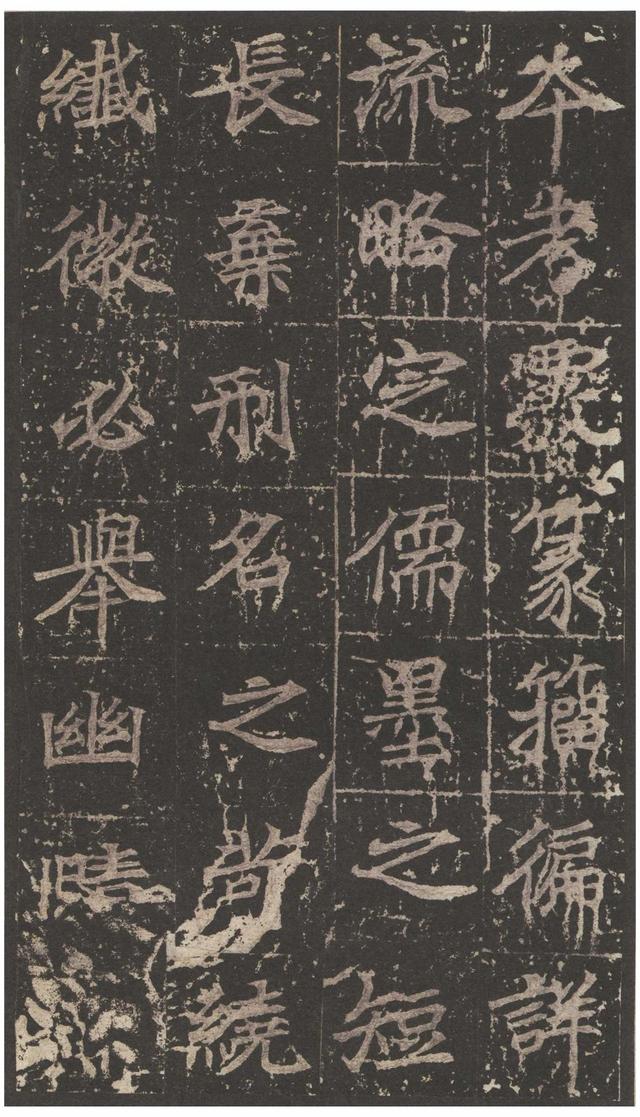 夲考覈篆籀徧詳
流略定儒墨之短
長棄刑名之繞
纖微必舉幽